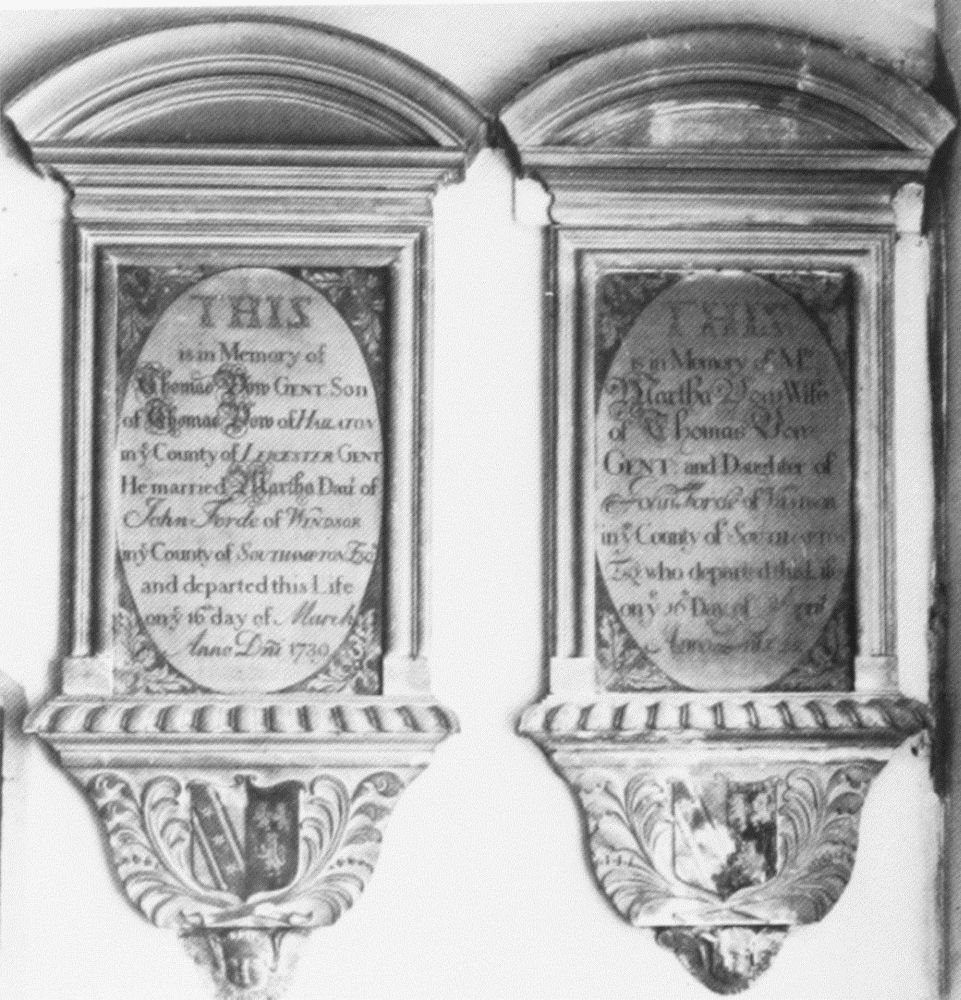 THIS
is in Memory of
Thomas Vow GENT. Son
of Thomas Vow of HALLATON
in yͤ County of LEICESTER GENT
He married Martha Dauͬ of
John Forde of WINDSOR
in yͤ County of SOUTHAMPTON Esqͬ
and departed this Life
on yͤ 16ͭͪ day of March
Anno Dni 1730
THIS
is in Memory of Mͬˢ
Martha Vow Wife
of Thomas Vow
GENT. and Daughter of
John Forde of
in yͤ County of SOUTHAMPTON
Esqͬ who departed this Life
on yͤ 16ͭͪ Day of April
Anno